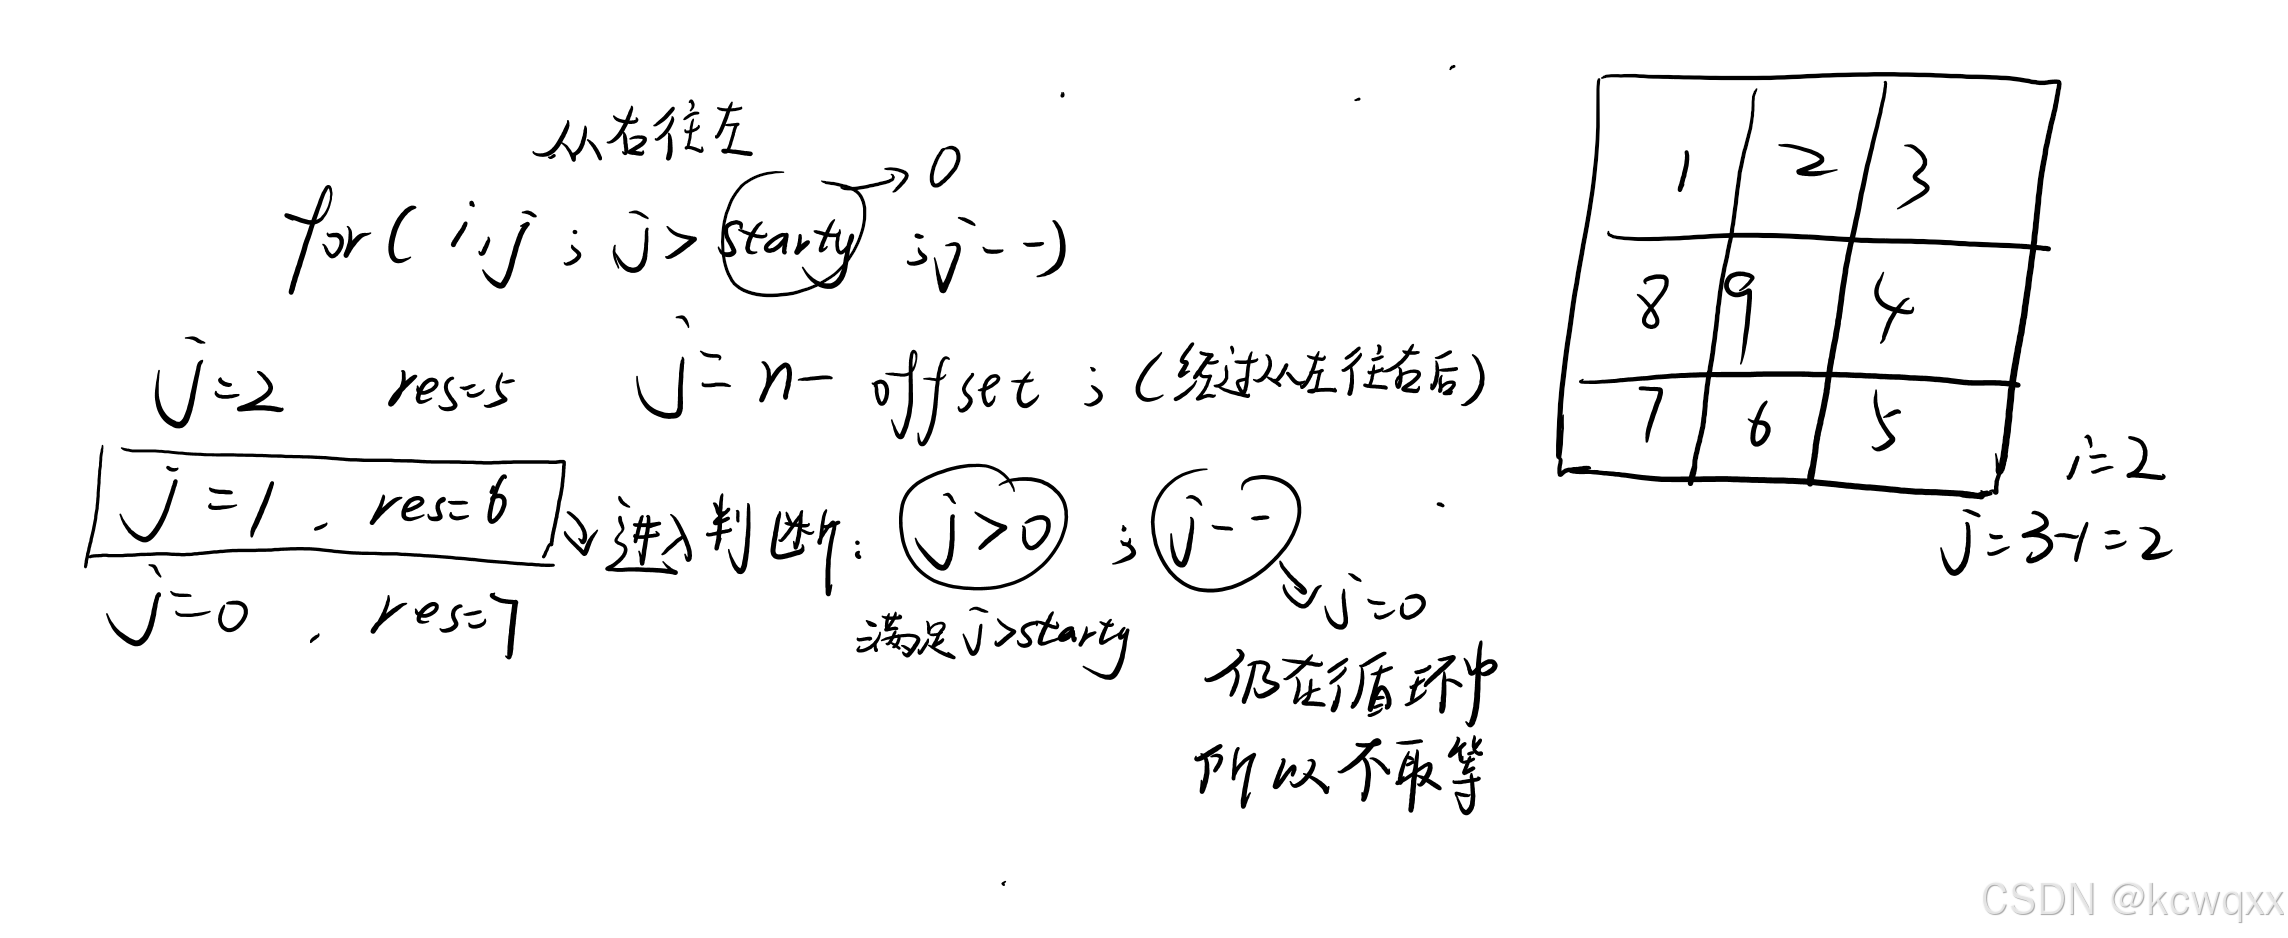 从右往左
for( i,j ; j> starty ; j--) → 0
j=2 res=5 j= n- offset ; (经过从左往右后)
j=1 . res=6 → 进入判断: j>0 ; j--
j=0 . res=7
满足j>starty
→ j=0
仍在循环中
所以不取等
1 2 3
8 9 4
7 6 5
i=2
j=3-1=2
CSDN @kcwqxx